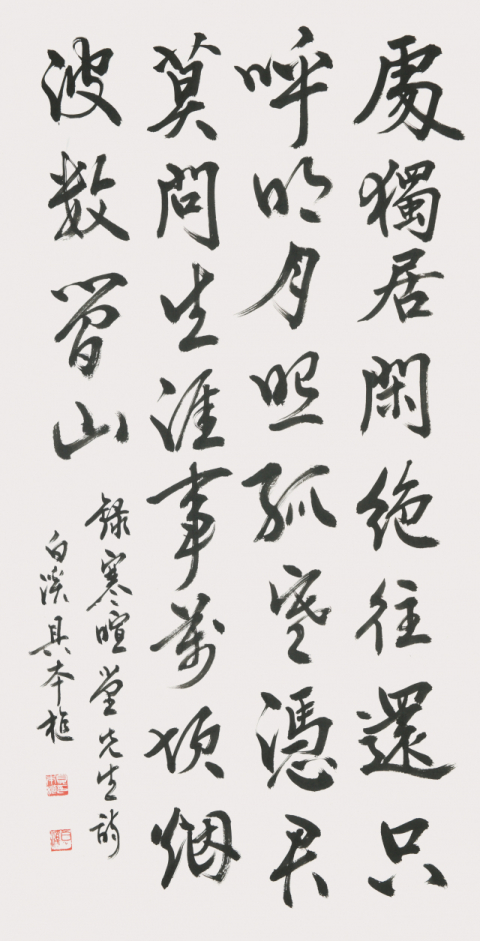 處獨居閑絶往還只
呼明月照孤寒憑君
莫問生涯事萬頃烟
波數曾山
錄寒暄堂先生詩
白溪具本